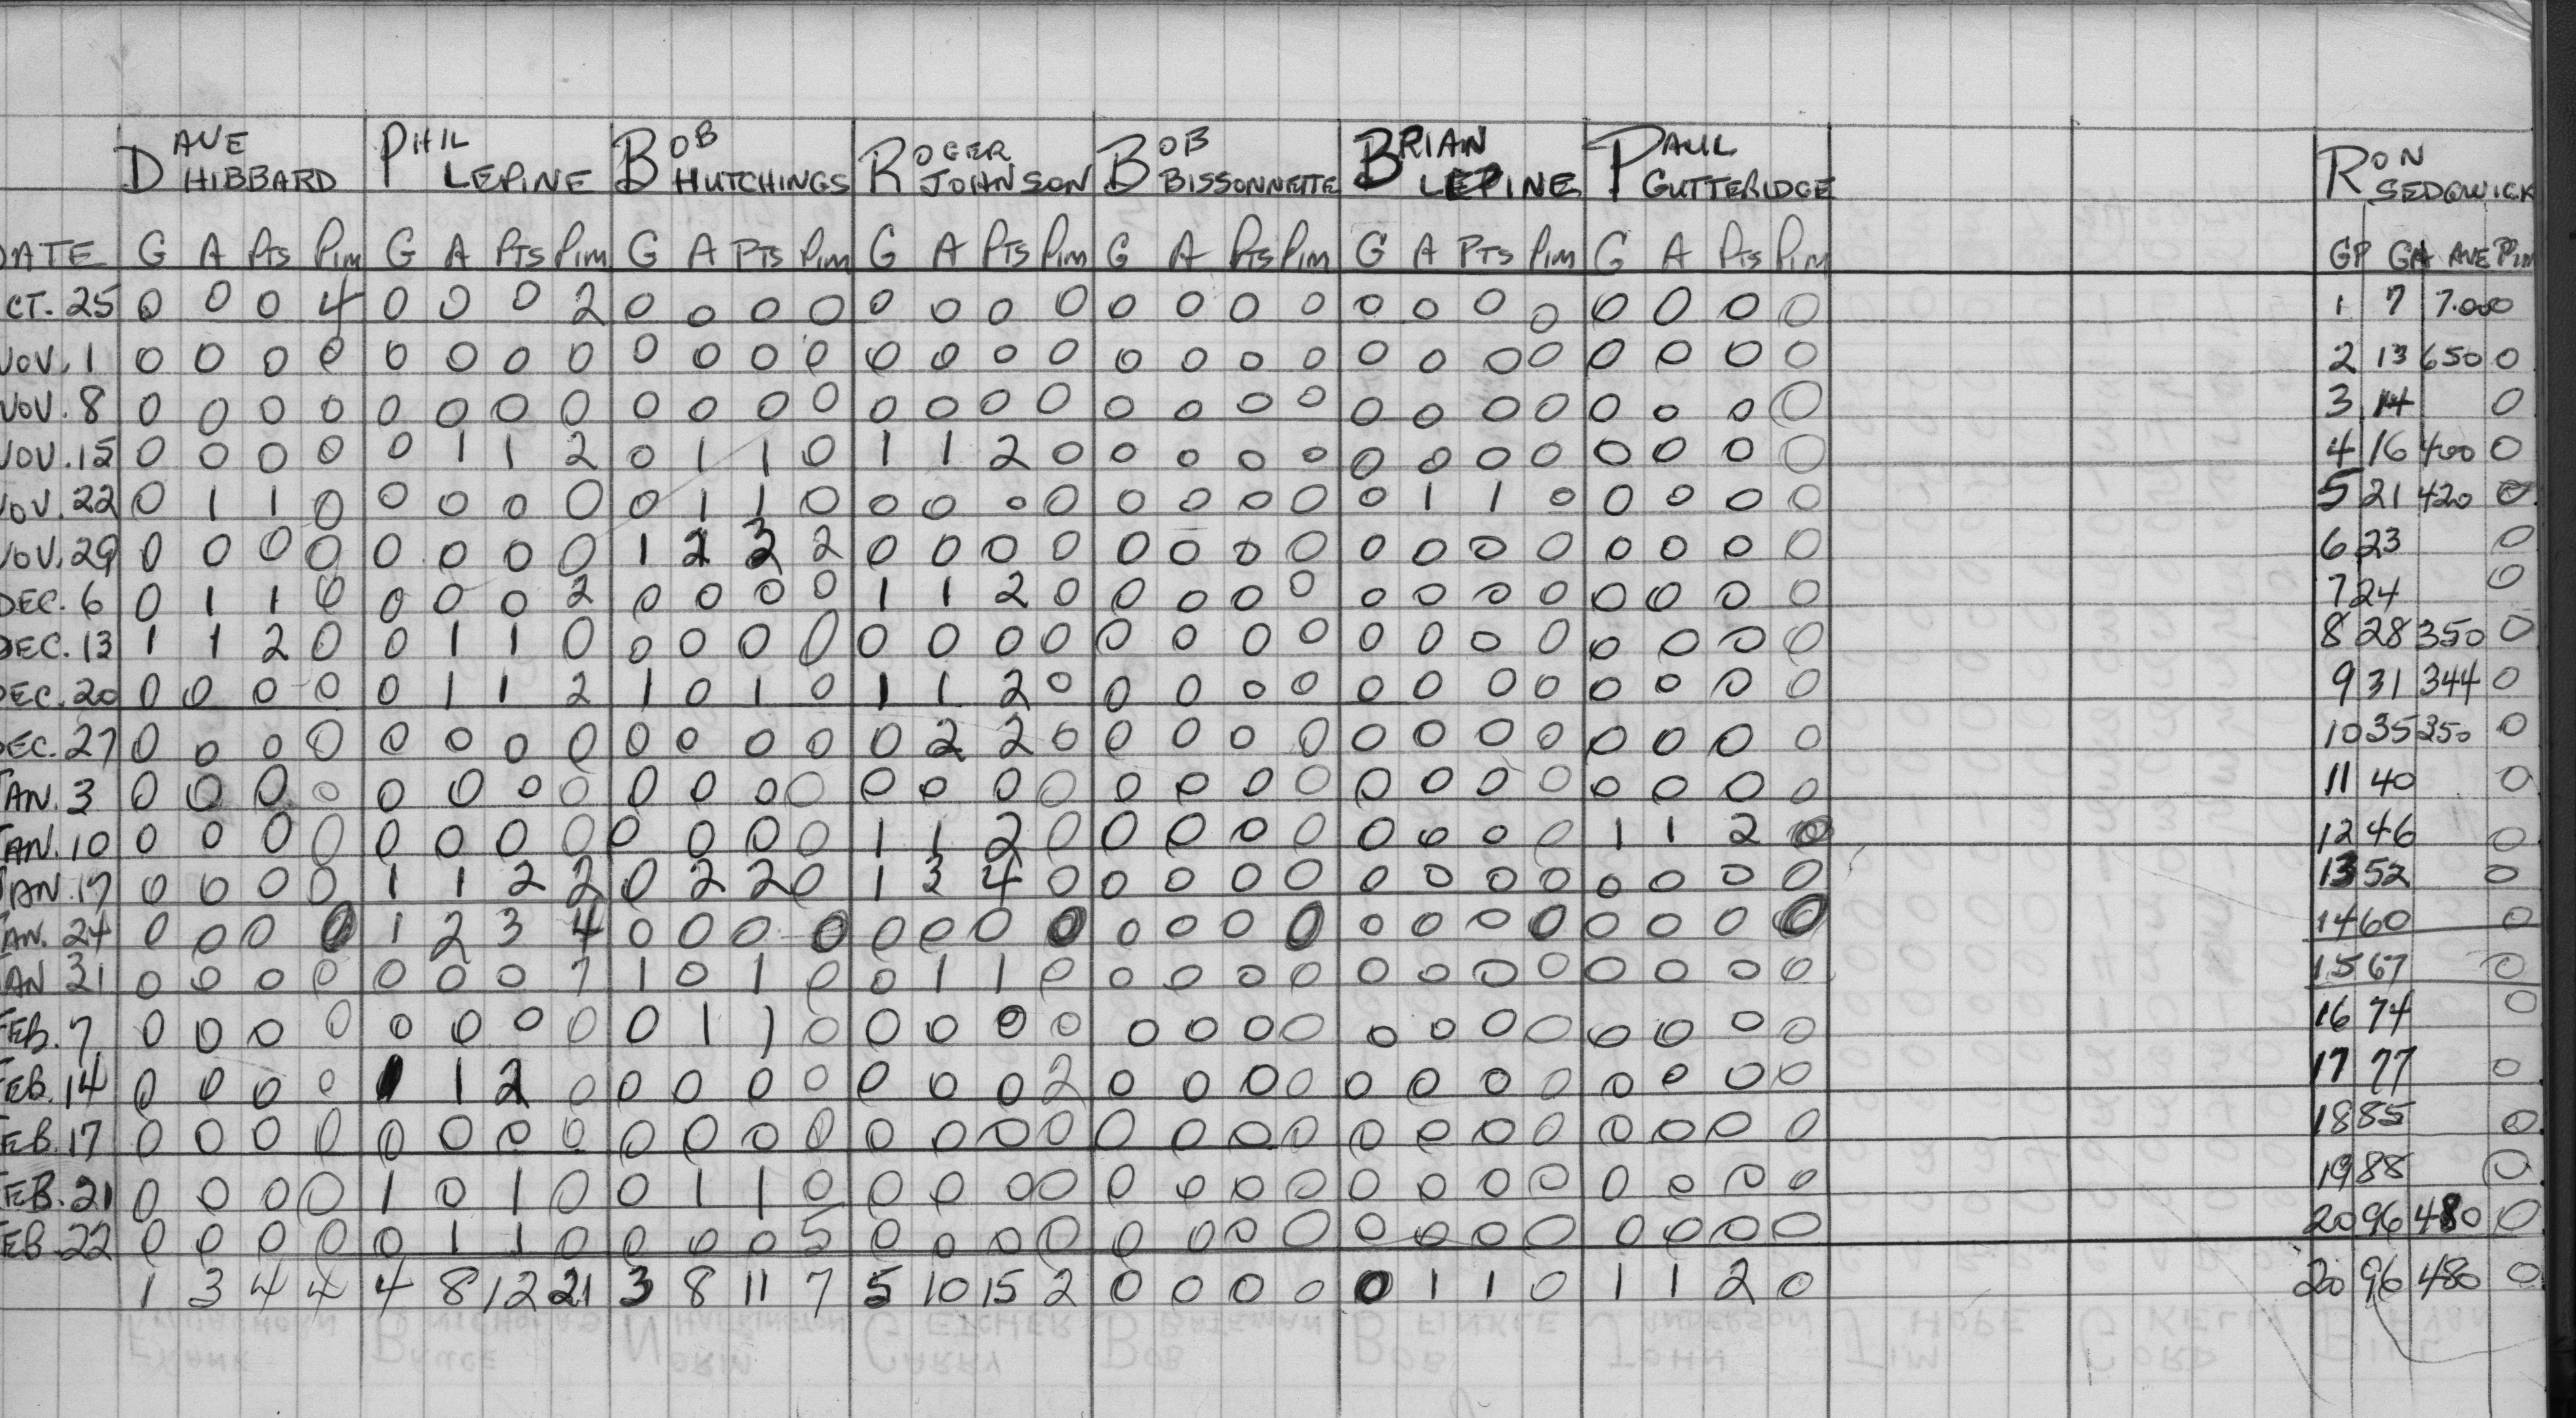 DAVE HIBBARD PHIL LEPINE BOB HUTCHINGS ROGER JOHNSON BOB BISSONNETTE BRIAN LEPINE PAUL GUTTERIDGE RON SEDGWICK
DATE G A PTS PIM G A PTS PIM G A PTS PIM G A PTS PIM G A PTS PIM G A PTS PIM G A PTS PIM GP GA AVE PIM
CT. 25 0 0 0 4 0 0 0 2 0 0 0 0 0 0 0 0 0 0 0 0 0 0 0 0 0 0 0 0 1 7 7.000
NOV. 1 0 0 0 0 0 0 0 0 0 0 0 0 0 0 0 0 0 0 0 0 0 0 0 0 0 0 0 0 2 13 650 0
NOV. 8 0 0 0 0 0 0 0 0 0 0 0 0 0 0 0 0 0 0 0 0 0 0 0 0 0 0 0 0 3 14 0
NOV. 15 0 0 0 0 0 1 1 2 0 1 1 0 1 1 2 0 0 0 0 0 0 0 0 0 0 0 0 0 4 16 400 0
NOV. 22 0 1 1 0 0 0 0 0 0 1 1 0 0 0 0 0 0 0 0 0 0 1 1 0 0 0 0 0 5 21 420 0
NOV. 29 0 0 0 0 0 0 0 0 1 2 3 2 0 0 0 0 0 0 0 0 0 0 0 0 0 0 0 0 6 23 0
DEC. 6 0 1 1 0 0 0 0 2 0 0 0 0 1 1 2 0 0 0 0 0 0 0 0 0 0 0 0 0 7 24 0
DEC. 13 1 1 2 0 0 1 1 0 0 0 0 0 0 0 0 0 0 0 0 0 0 0 0 0 0 0 0 0 8 28 350 0
DEC. 20 0 0 0 0 0 1 1 2 1 0 1 0 1 1 2 0 0 0 0 0 0 0 0 0 0 0 0 0 9 31 344 0
DEC. 27 0 0 0 0 0 0 0 0 0 0 0 0 0 2 2 0 0 0 0 0 0 0 0 0 0 0 0 0 10 35 350 0
JAN. 3 0 0 0 0 0 0 0 0 0 0 0 0 0 0 0 0 0 0 0 0 0 0 0 0 0 0 0 0 11 40 0
JAN. 10 0 0 0 0 0 0 0 0 0 0 0 0 1 1 2 0 0 0 0 0 0 0 0 0 1 1 2 0 12 46 0
JAN. 17 0 0 0 0 1 1 2 2 0 2 2 0 1 3 4 0 0 0 0 0 0 0 0 0 0 0 0 0 13 52 0
JAN. 24 0 0 0 0 1 2 3 4 0 0 0 0 0 0 0 0 0 0 0 0 0 0 0 0 0 0 0 0 14 60 0
JAN 31 0 0 0 0 0 0 0 7 1 0 1 0 0 1 1 0 0 0 0 0 0 0 0 0 0 0 0 0 15 67 0
FEB. 7 0 0 0 0 0 0 0 0 0 1 1 0 0 0 0 0 0 0 0 0 0 0 0 0 0 0 0 0 16 74 0
FEB. 14 0 0 0 0 1 1 2 0 0 0 0 0 0 0 0 2 0 0 0 0 0 0 0 0 0 0 0 0 17 77 0
FEB. 17 0 0 0 0 0 0 0 0 0 0 0 0 0 0 0 0 0 0 0 0 0 0 0 0 0 0 0 0 18 85 0
FEB. 21 0 0 0 0 1 0 1 0 0 1 1 0 0 0 0 0 0 0 0 0 0 0 0 0 0 0 0 0 19 88 0
FEB. 22 0 0 0 0 0 1 1 0 0 0 0 5 0 0 0 0 0 0 0 0 0 0 0 0 0 0 0 0 20 96 480 0
1 3 4 4 4 8 12 21 3 8 11 7 5 10 15 2 0 0 0 0 0 1 1 0 1 1 2 0 20 96 480 0